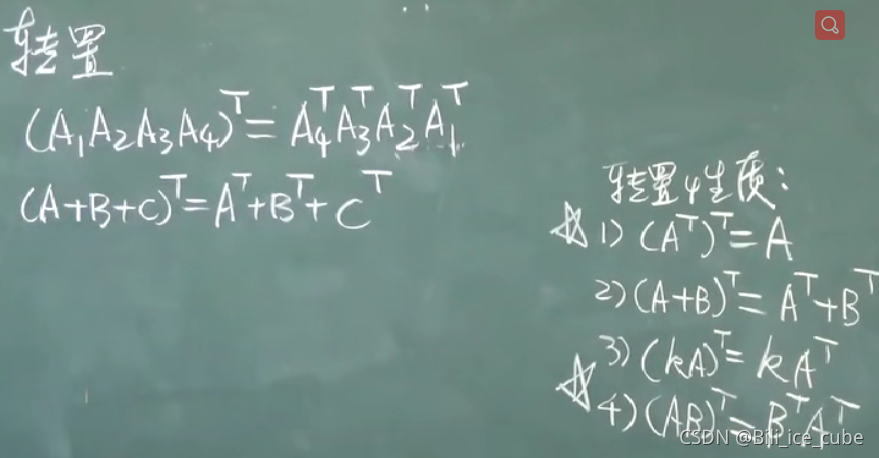 转置
(A₁A₂A₃A₄)ᵀ= A₄ᵀA₃ᵀA₂ᵀA₁ᵀ
(A+B+C)ᵀ=Aᵀ+Bᵀ+Cᵀ
转置性质:
☆ 1) (Aᵀ)ᵀ=A
2) (A+B)ᵀ=Aᵀ+Bᵀ
3) (kA)ᵀ=kAᵀ
☆ 4) (AB)ᵀ=BᵀAᵀ
CSDN @Bili_ice_cube